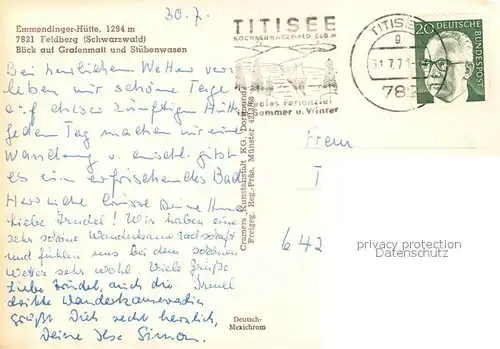 30.7.
Emmendinger-Hütte, 1294 m
7821 Feldberg (Schwarzwald)
Blick auf Grafenmatt und Stübenwasen
Bei herrlichem Wetter ver-
leben wir schöne Tage
auf dieser zünftigen Hütte
Jeden Tag machen wir eine
Wandung u. anschl. gibt
es ein erfrischendes Bad
Herzliche Grüsse Deine
Liebe Trudel! Wir haben eine
sehr schöne Wanderkameradschaft
und fühlen uns bei dem schönen
Wetter sehr wohl. Viele Grüße
Liebe Trudel, auch die Irmel
dritte Wanderkameradin
grüßt Dich recht herzlich,
Deine Ilse Simon.
TITISEE
HOCHSCHWARZWALD 860 m
Ferienziel
Sommer u. Winter
TITISEE
g
31.7.71
782
20
DEUTSCHE
BUNDESPOST
Cramers Kunstanstalt KG, Dortmund
Freigeg. Reg.-Präs. Münster
Deutsch-
Mexichrom
T
642
copyright_PREVIEW
Datenschutz